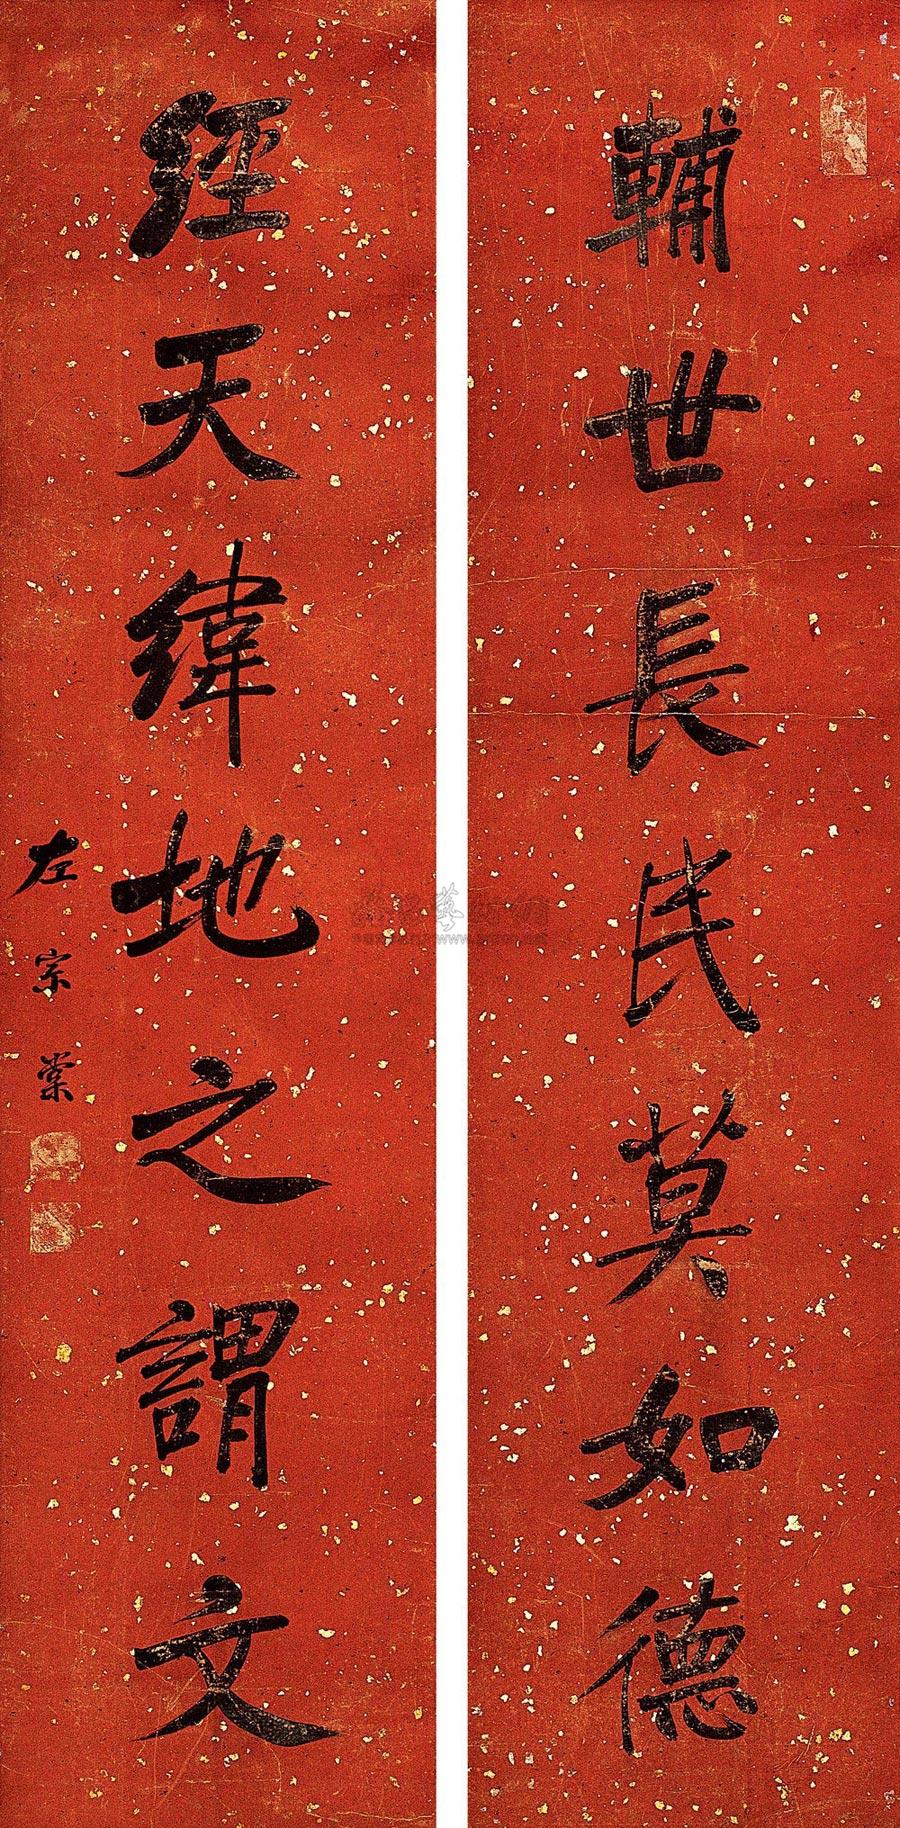 輔世長民莫如德
經天緯地之謂文
左宗棠